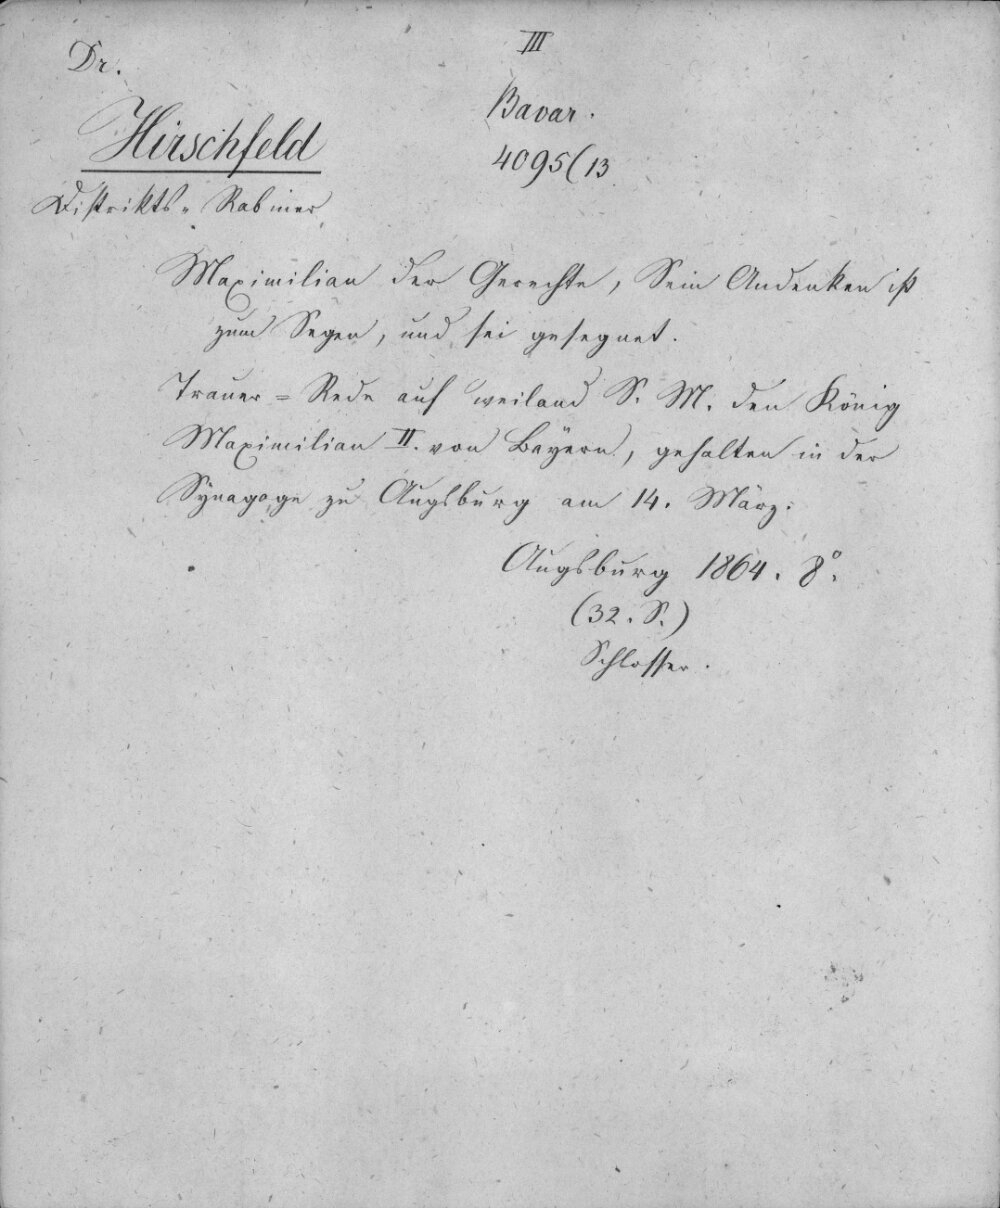 III
Dr.
Bavar.
Hirschfeld
4095(13
Distrikts-Rabiner
Maximilian der Gerechte, Sein Andenken ist
zum Segen, und sei gesegnet.
Trauer=Rede auf weiland S. M. den König
Maximilian II. von Bayern, gehalten in der
Synagoge zu Augsburg am 14. März.
Augsburg 1864. 8°.
(32. S.)
Schlosser.